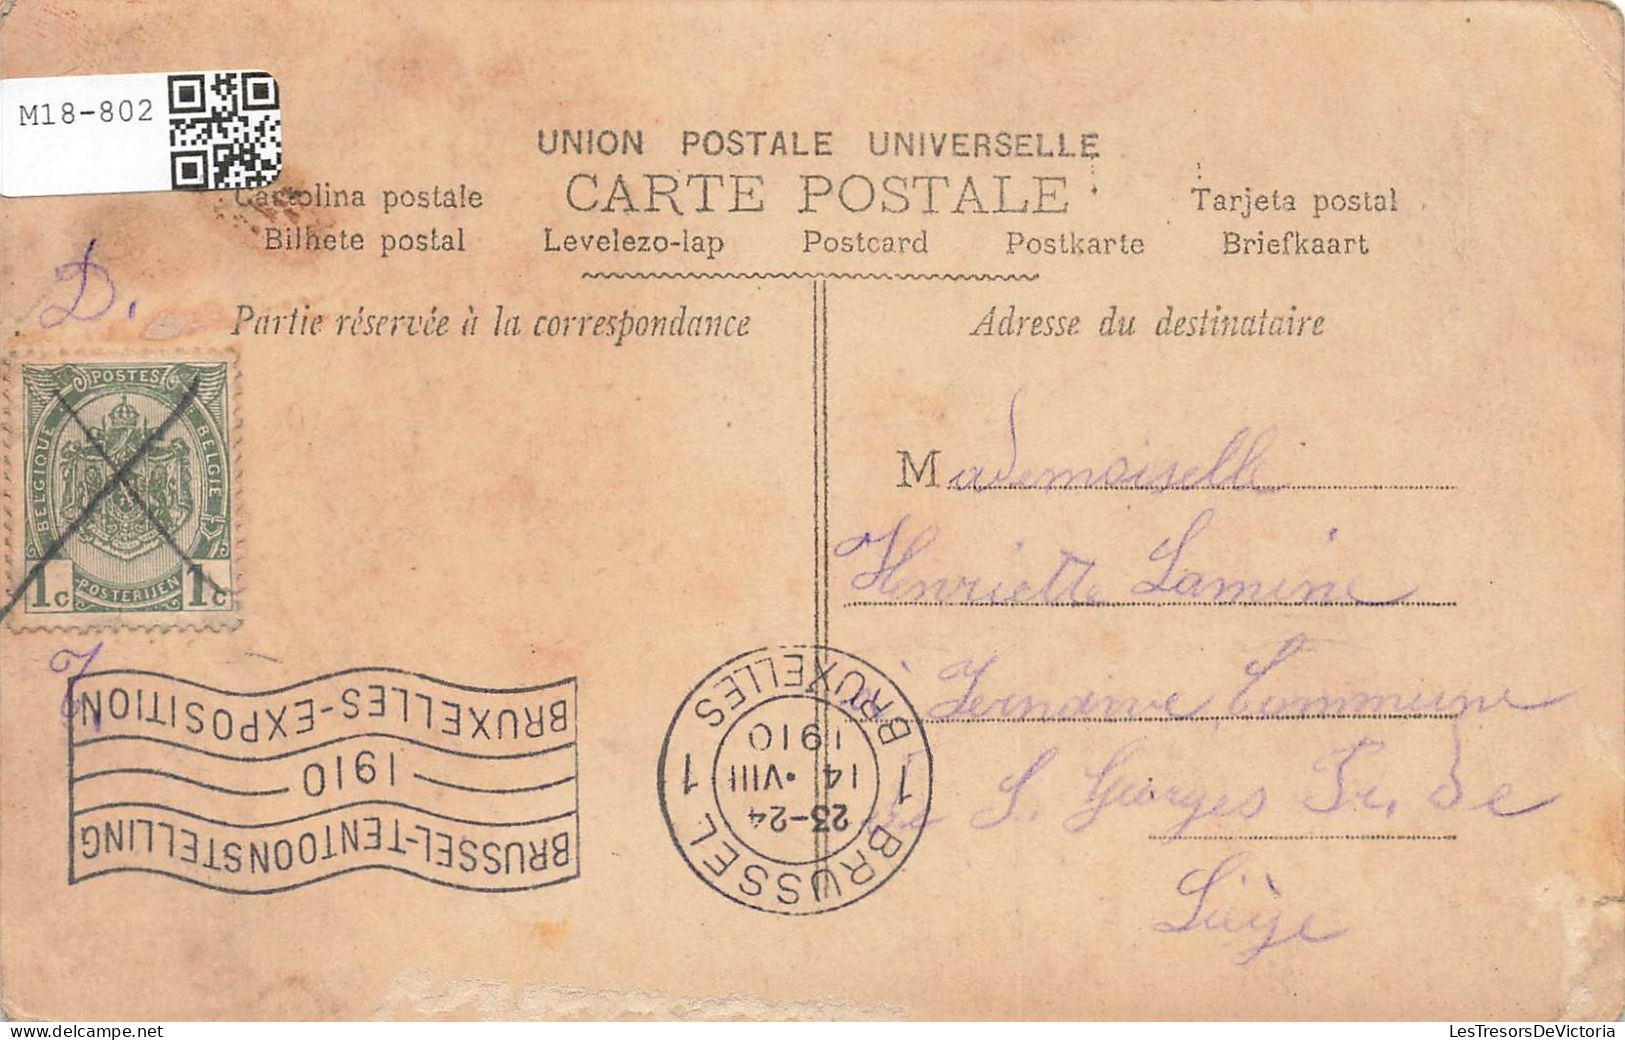 M18-802
UNION POSTALE UNIVERSELLE
Cartolina postale CARTE POSTALE Tarjeta postal
Bilhete postal Levelezo-lap Postcard Postkarte Briefkaart
D.
Partie réservée à la correspondance
Adresse du destinataire
POSTES
BELGIQUE BELGIE
1c POSTERIJEN 1c
Mademoiselle
Henriette Lamine
à Commune
de S. Georges Pr. de
Liège
BRUXELLES-EXPOSITION
1910
BRUSSEL-TENTOONSTELLING
1 BRUSSEL 1 BRUXELLES
23-24
14 •VIII
1910
LesTresorsDeVictoria
www.delcampe.net